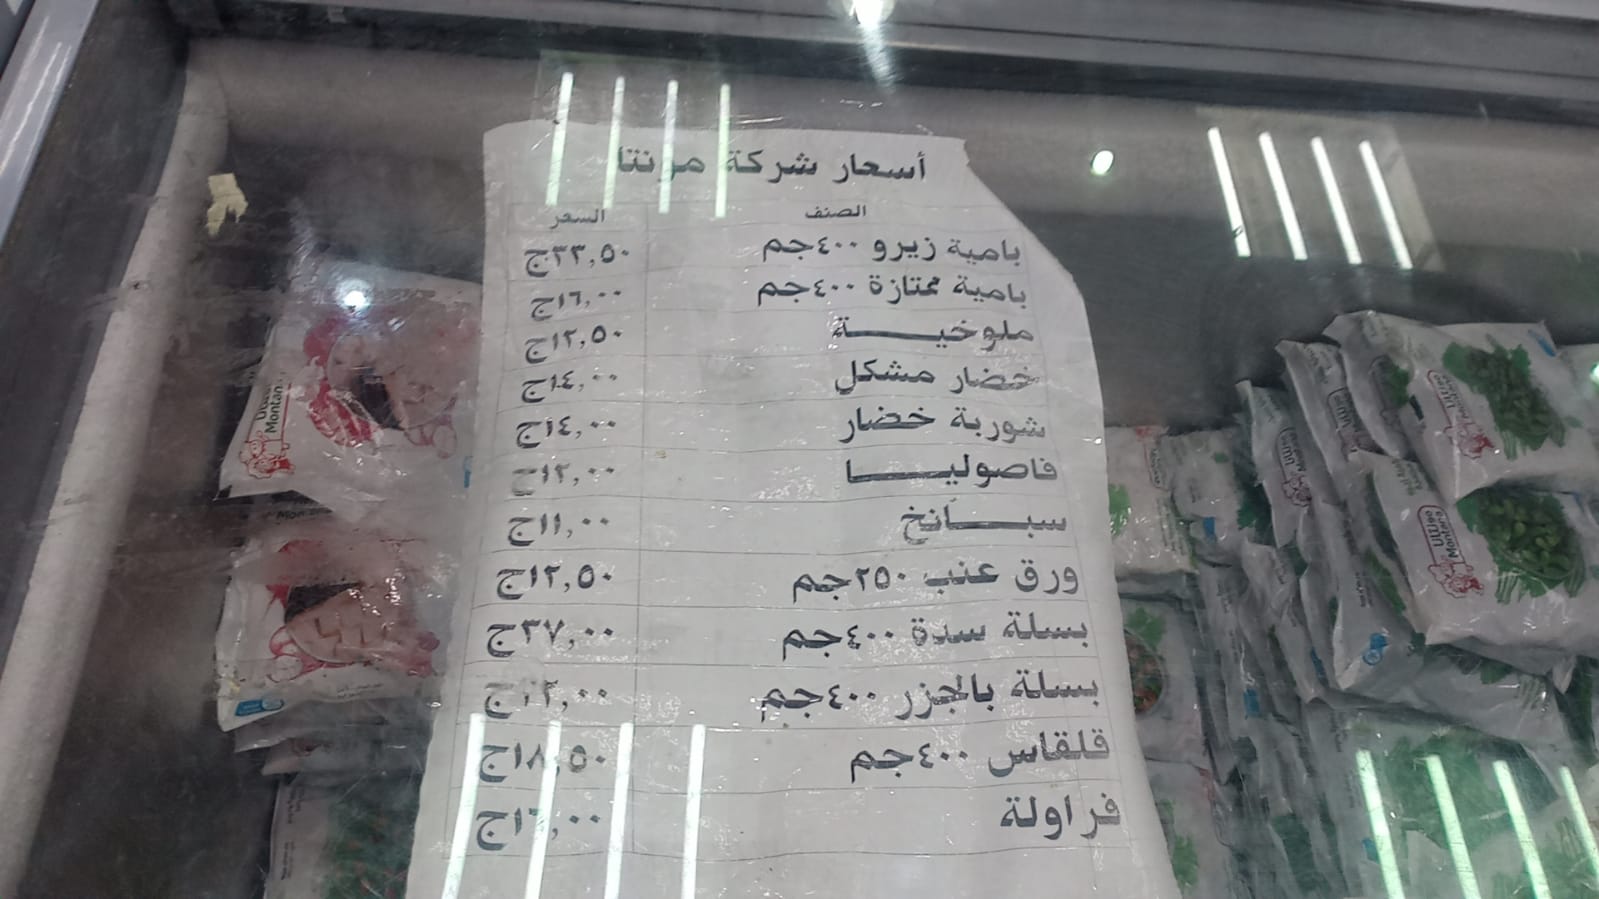 أسعار شركة مونتا
الصنف السعر
بامية زيرو ٤٠٠جم ٣٣,٥٠ج
بامية ممتازة ٤٠٠جم ١٦,٠٠ج
ملوخيـــــة ١٢,٥٠ج
خضار مشكل ١٤,٠٠ج
شوربة خضار ١٤,٠٠ج
فاصوليـــــا ١٢,٠٠ج
سبـــــانخ ١١,٠٠ج
ورق عنب ٢٥٠جم ١٢,٥٠ج
بسلة سدة ٤٠٠جم ٣٧,٠٠ج
بسلة بالجزر ٤٠٠جم
قلقاس ٤٠٠جم ١٨,٥٠ج
فراولة ١٦,٠٠ج
Montana
مونتانا
Montana